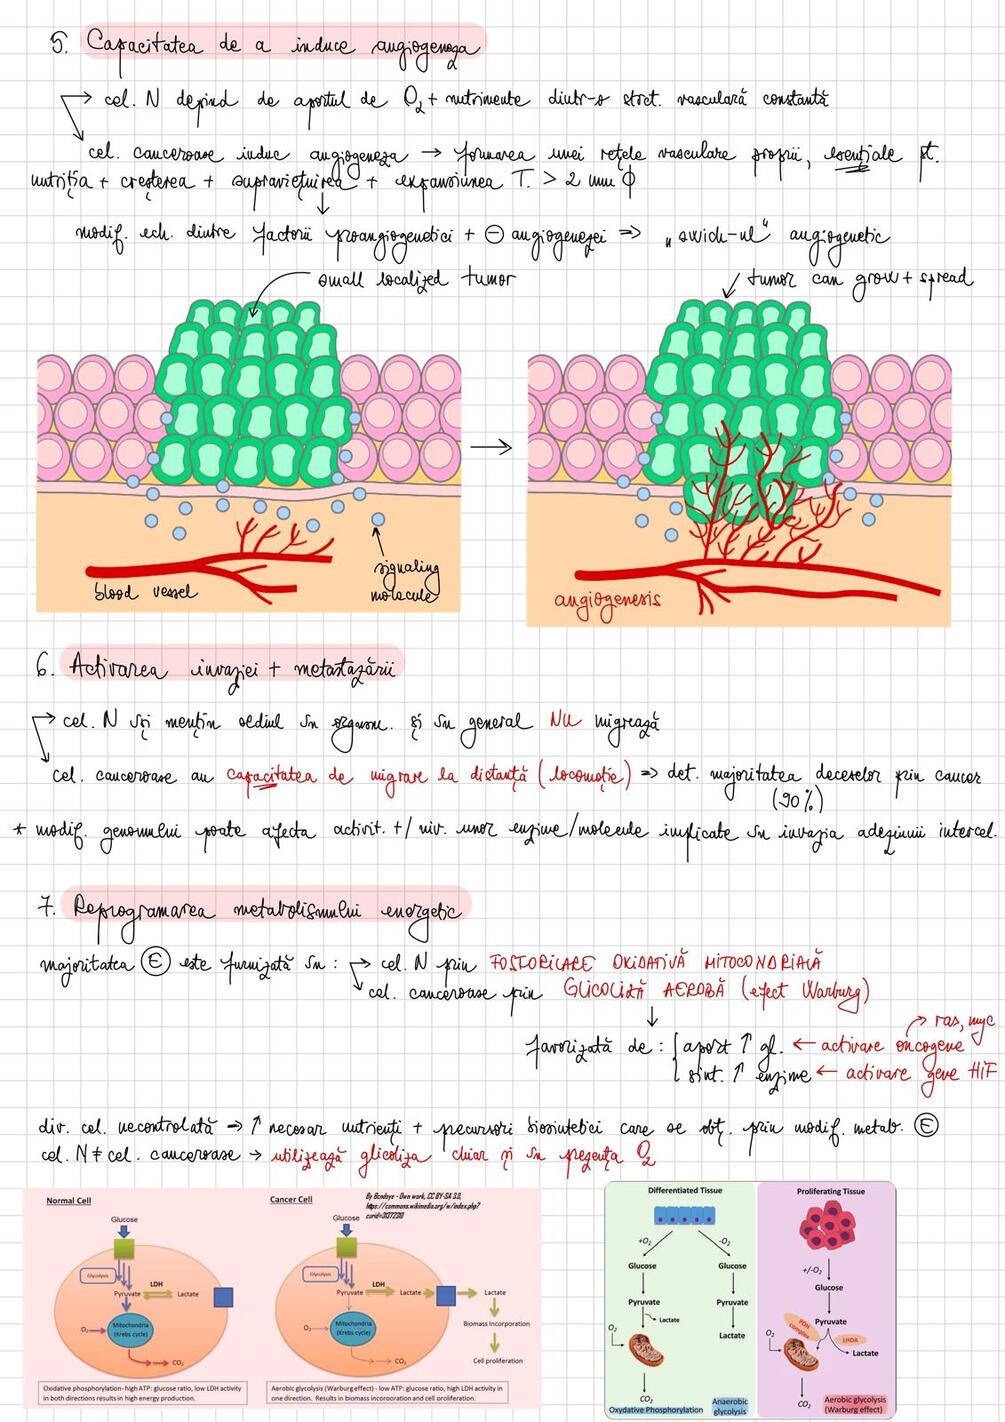 5. Capacitatea de a induce angiogeneza
→ cel. N depind de aportul de O₂ + nutrimente dintr-o strct. vasculară constantă
cel. canceroase induc angiogeneza → formarea unei rețele vasculare proprii, esențiale pt.
nutriția + creșterea + supraviețuirea + expansiunea T. > 2 mm ϕ
modif. ech. dintre factorii proangiogenetici + ⊖ angiogenezei => „swich-ul“ angiogenetic
small localized tumor
tumor can grow + spread
blood vessel
signaling
molecule
angiogenesis
6. Activarea invaziei + metastazării
→ cel. N își mențin sediul în organism. și în general NU migrează
cel. canceroase au capacitatea de migrare la distanță (locomoție) => det. majoritatea deceselor prin cancer
(90%)
* modif. genomului poate afecta activit. +/ niv. unor enzime/molecule implicate în invazia adeziunii intercel.
7. Reprogramarea metabolismului energetic
majoritatea Ⓔ este furnizată în : → cel. N prin FOSFORILARE OXIDATIVĂ MITOCONDRIALĂ
cel. canceroase prin GLICOLIZĂ AEROBĂ (efect Warburg)
ras, myc
favorizată de : aport ↑ gl. ← activare oncogene
sint. ↑ enzime ← activare gene HiF
div. cel. necontrolată → ↑ necesar nutrienți + precursori biosintetici care se obț. prin modif. metab. Ⓔ
cel. N ≠ cel. canceroase → utilizează glicoliza chiar și în prezența O₂
Normal Cell
Glucose
Glycolysis
LDH
Pyruvate
Lactate
O₂
Mitochondria
(Krebs cycle)
CO₂
Oxidative phosphorylation- high ATP: glucose ratio, low LDH activity
in both directions results in high energy production.
Cancer Cell
By Bcndoye - Own work, CC BY-SA 3.0,
https://commons.wikimedia.org/w/index.php?
Glucose
Glycolysis
LDH
Pyruvate
Lactate
Lactate
Biomass incorporation
Cell proliferation
O₂
Mitochondria
(Krebs cycle)
CO₂
Aerobic glycolysis (Warburg effect) - low ATP: glucose ratio, high LDH activity in
one direction. Results in biomass incorporation and cell proliferation.
Differentiated Tissue
+O₂
-O₂
Glucose
Glucose
Pyruvate
Pyruvate
Lactate
Lactate
O₂
CO₂
Oxydative Phosphorylation
Anaerobic
glycolysis
Proliferating Tissue
+/-O₂
Glucose
Pyruvate
PDH
complex
LHDA
O₂
Lactate
CO₂
Aerobic glycolysis
(Warburg effect)